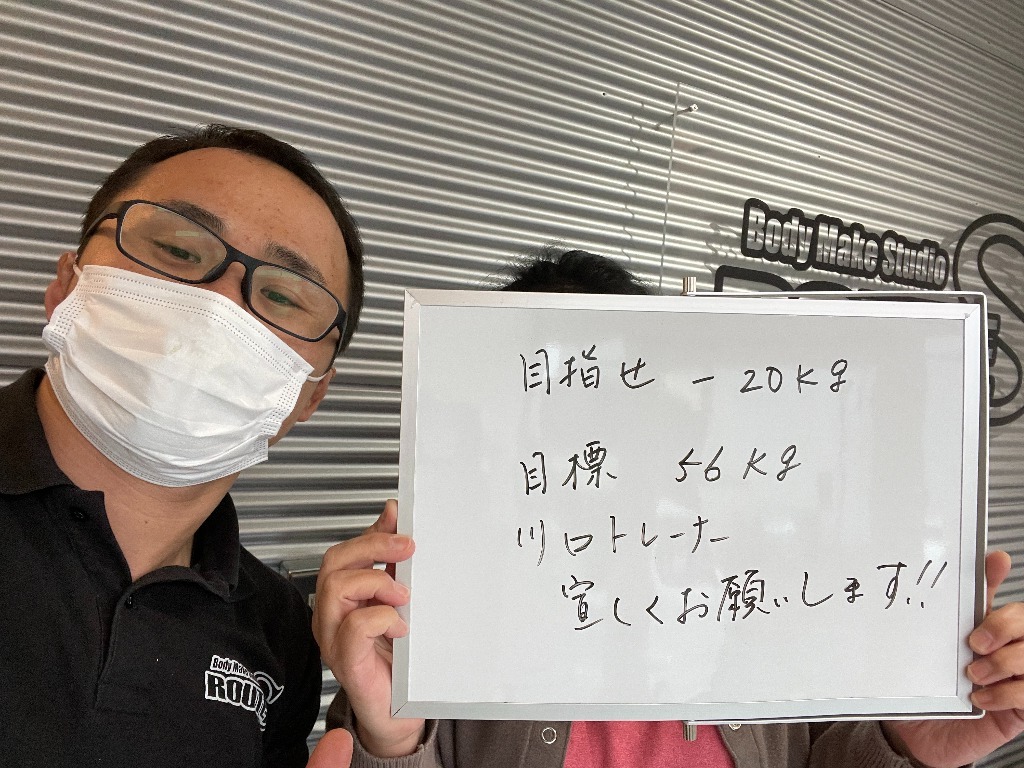 Body Make Studio
目指せ －20Kg
目標 56Kg
川口トレーナー
宜しくお願いします!!
Body Make